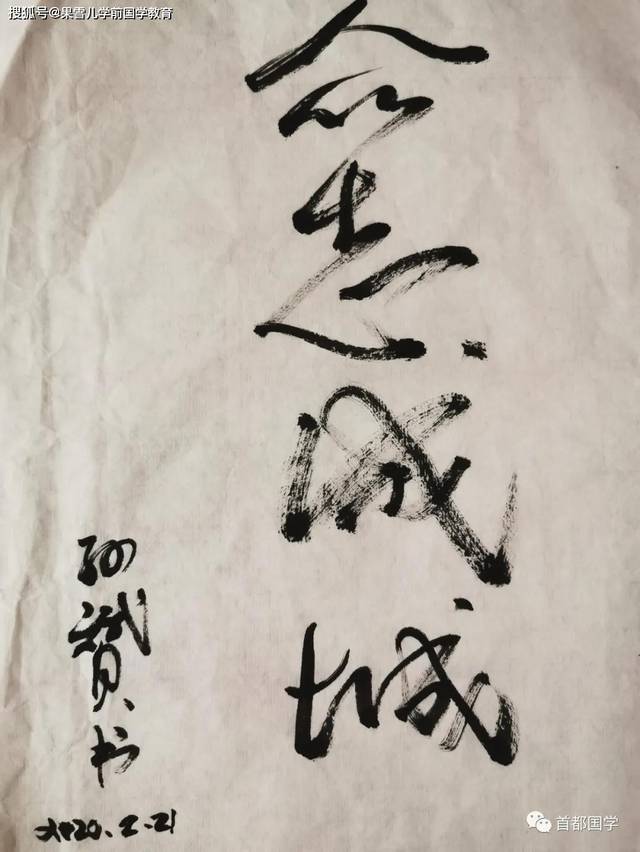 搜狐号@果雪儿学前国学教育
众志成城
孙斌赟书
2020.2.21
首都国学